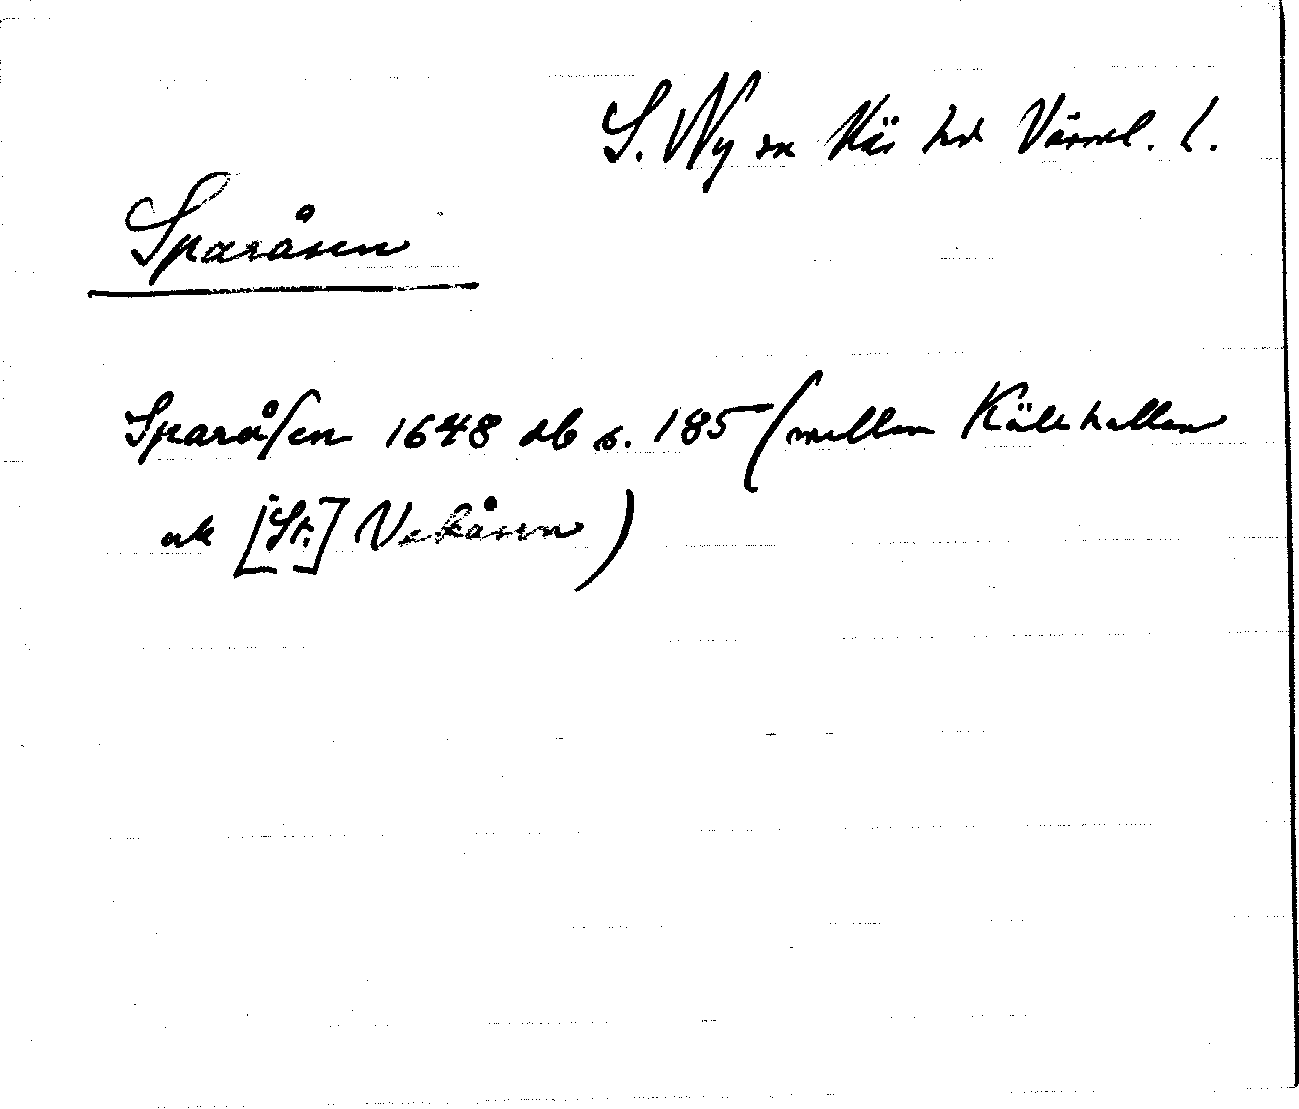 S. Ny sn Käs hd Värml. l.
Sparåsen
Sparåſen 1648 db s. 185 (mellan Källehallen
ock [St.] Vekåsen)